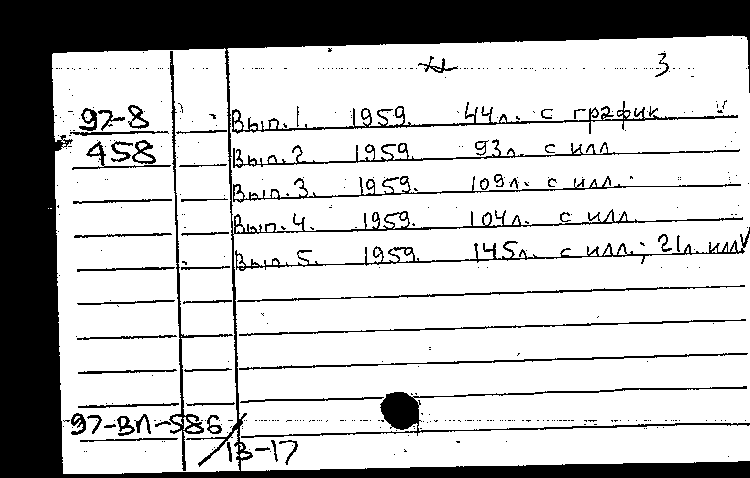 3
97-8 Вып.1. 1959. 44л. с график
458 Вып.2. 1959. 93л. с илл.
Вып.3. 1959. 109л. с илл.
Вып.4. 1959. 104л. с илл.
Вып.5. 1959. 145л. с илл.; 21л. илл
97-ВЛ-586/13-17